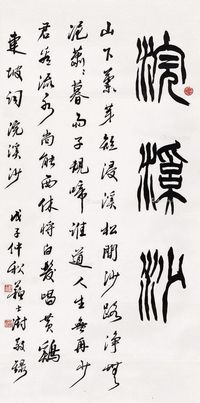 浣溪沙
山下蘭芽短浸溪松間沙路淨無
泥蕭〻暮雨子規啼誰道人生無再少
君看流水尚能西休將白髮唱黃鷄
東坡詞浣溪沙 戊子仲秋蘇士澍敬錄